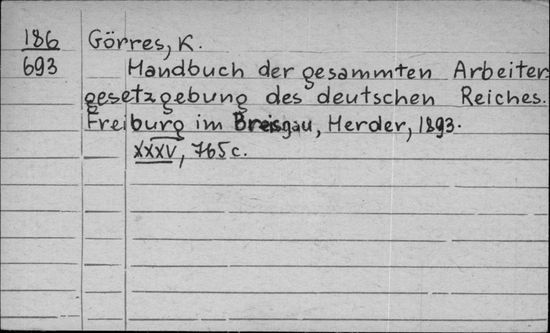 186 Görres, K.
693 Handbuch der gesammten Arbeiter=
gesetzgebung des deutschen Reiches.
Freiburg im Breisgau, Herder, 1893.
XXXV, 765 c.